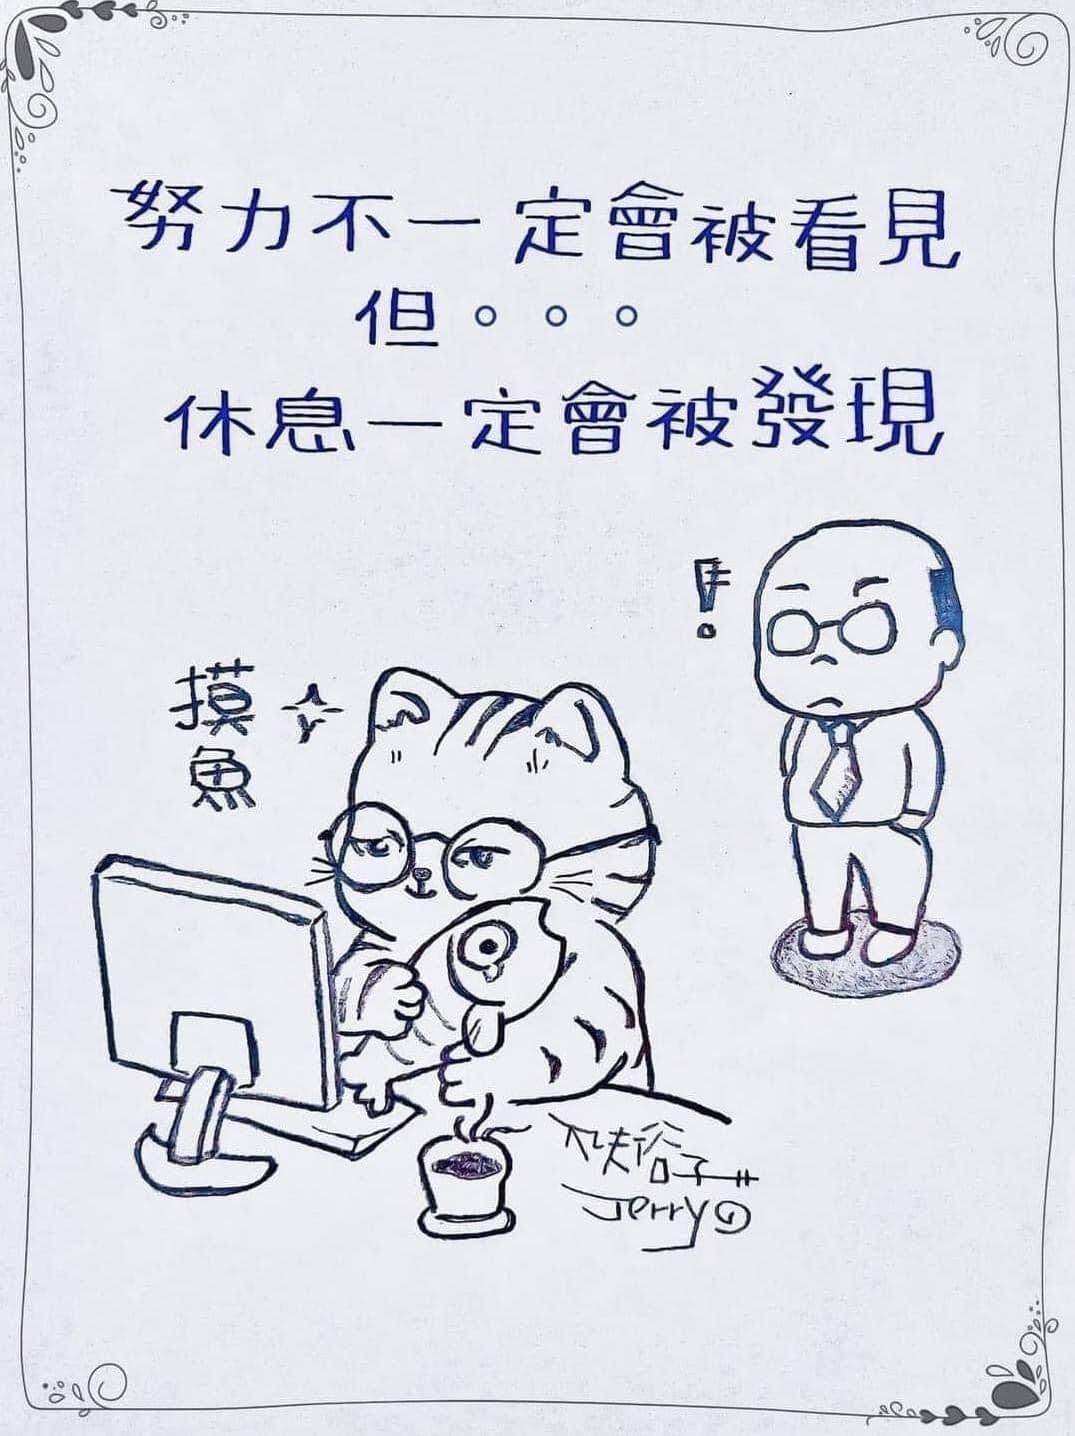 努力不一定會被看見
但。。。
休息一定會被發現
!
摸
魚
Jerry